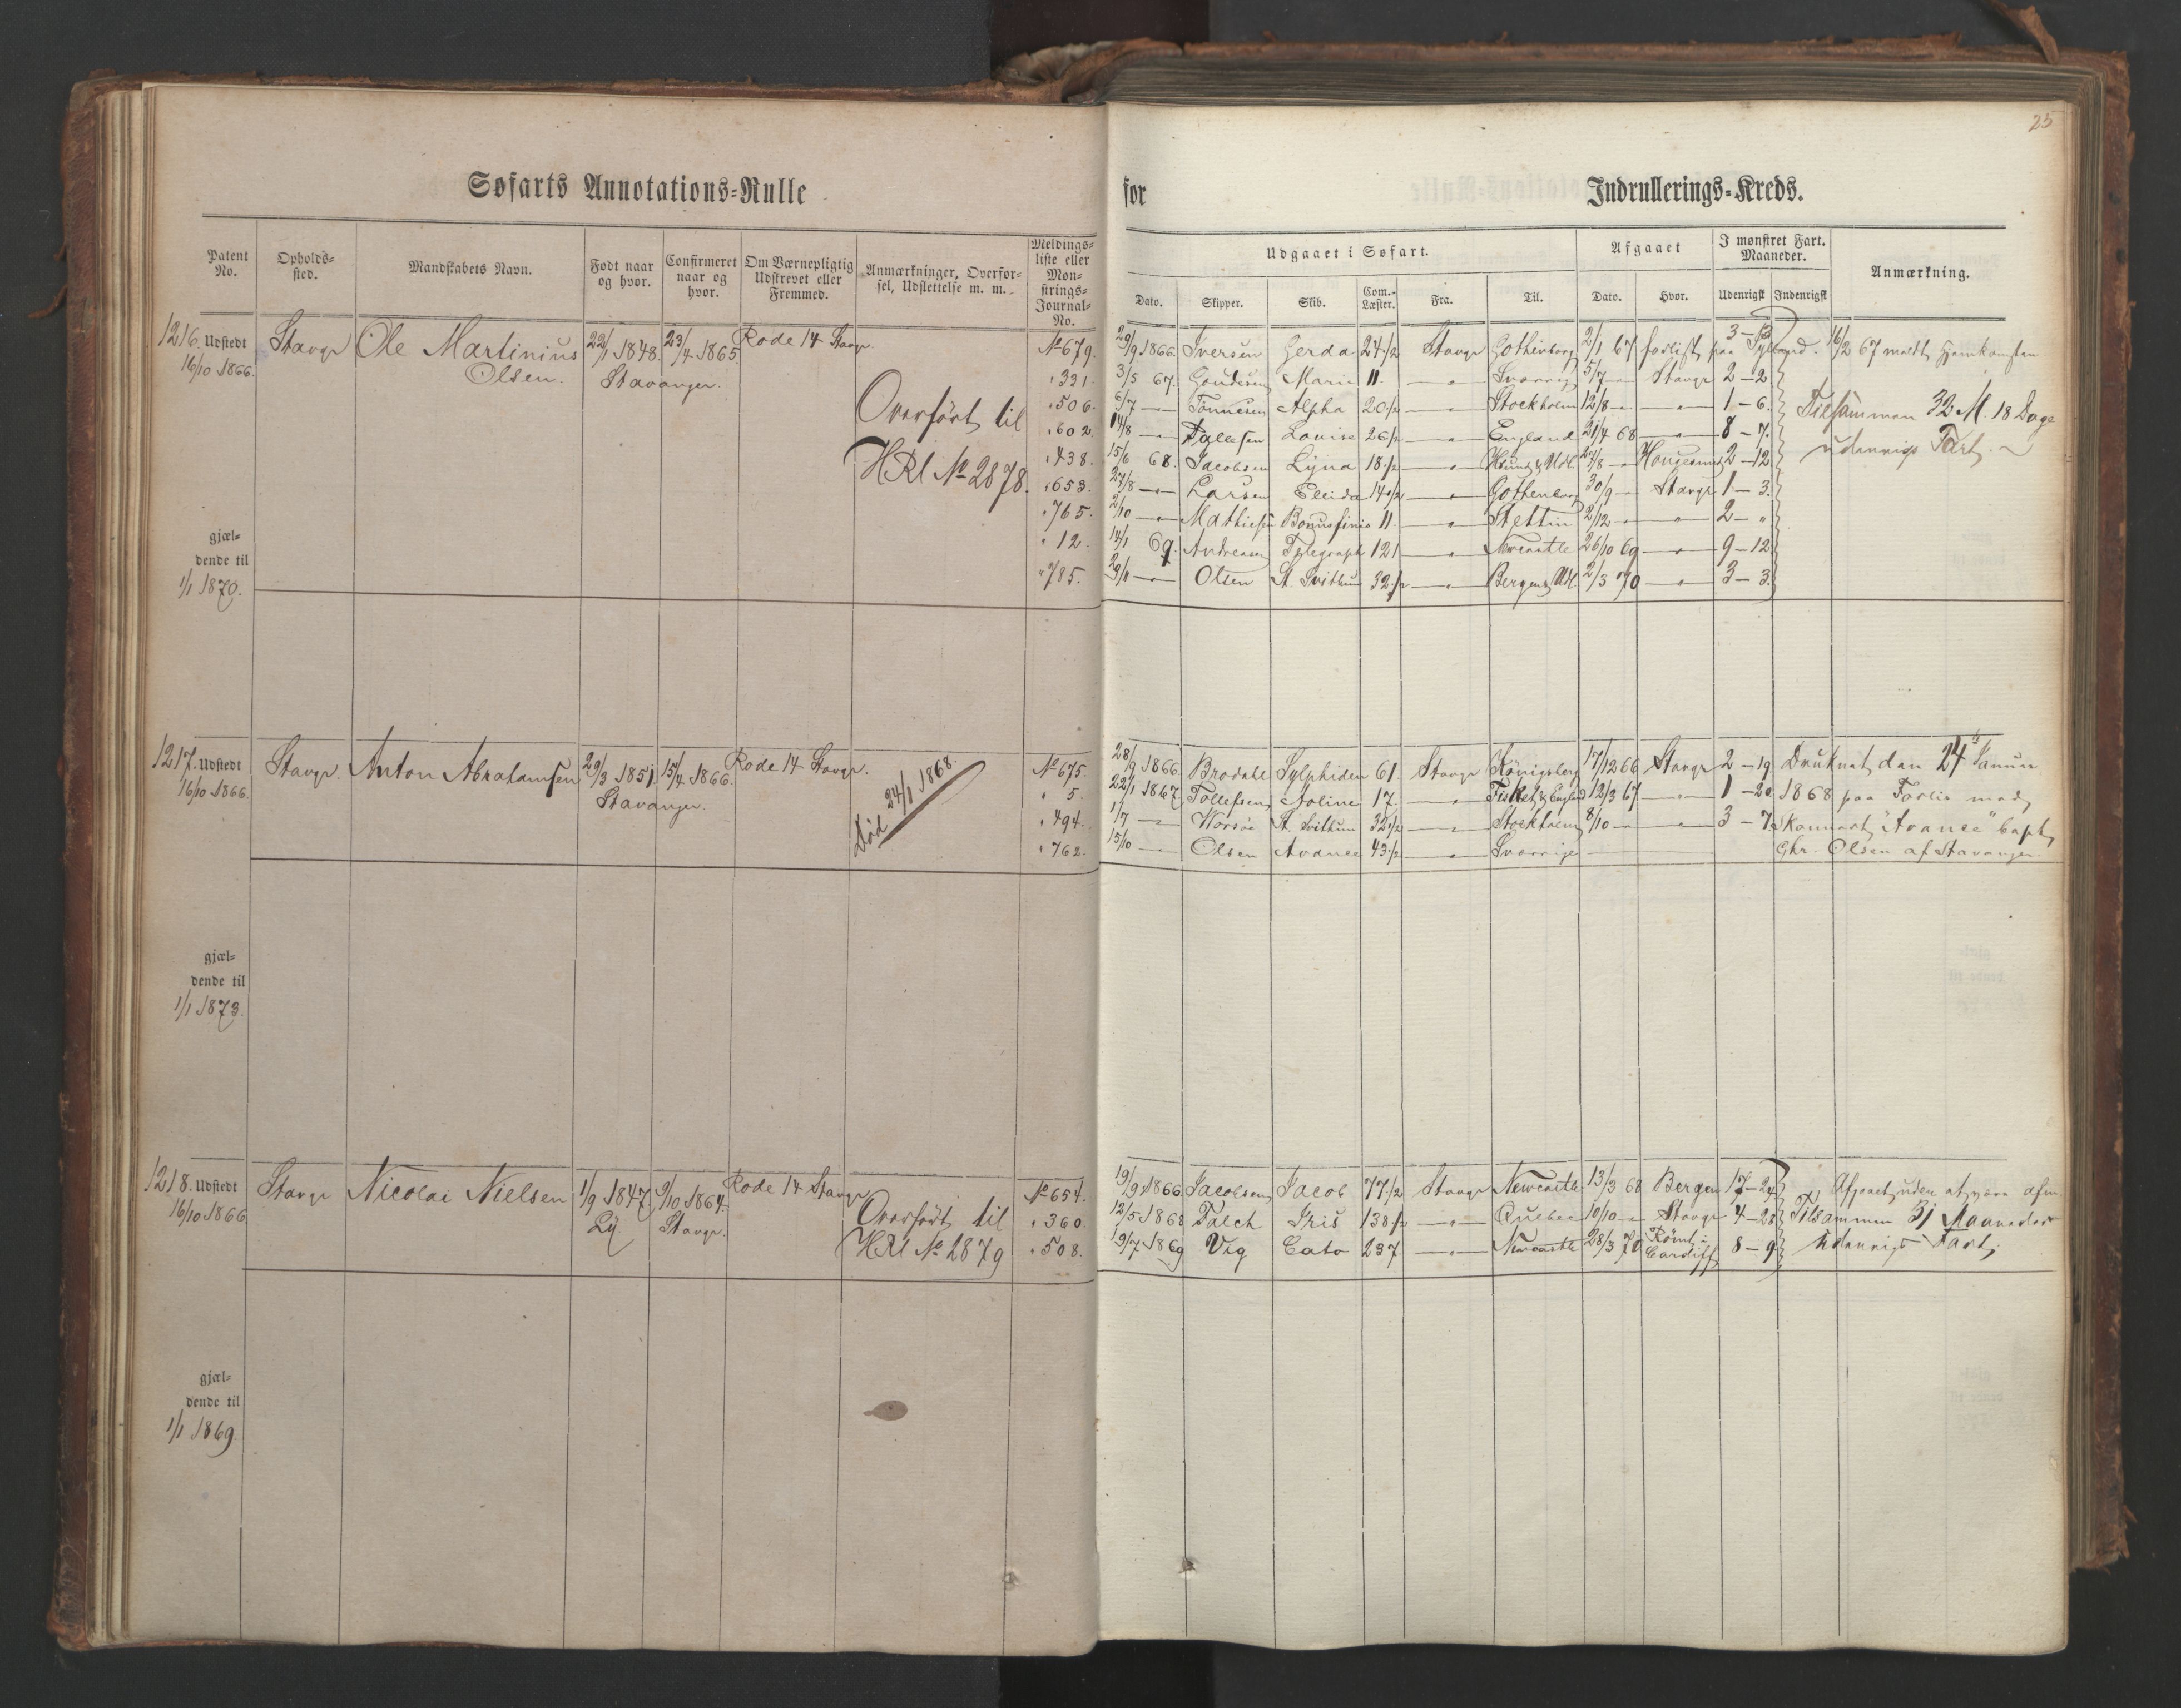 25
Søfarts Annotations=Rulle
for
Indrullerings=Kreds.
Patent No.
Opholds=sted.
Mandskabets Navn.
Født naar og hvor.
Confirmeret naar og hvor.
Om Værnepligtig Udskrevet eller Fremmed.
Anmærkninger, Overfør=sel, Udslettelse m. m.
Meldings=liste eller Møn=strings=Journal=No.
Udgaaet i Søfart.
Afgaaet
I mønstret Fart. Maaneder.
Anmærkning.
Dato. Skipper. Skib. Com.=Læster. Fra. Til. Dato. Hvor. Udenrigsk Indenrigsk
1216. Udstedt 16/10 1866.
Stavgr Ole Martinius Olsen. 22/1 1848. Stavanger. 23/4 1865. Rode 14 Stavgr.
Overført til
HRl No 2878.
No 679. 29/9 1866. Iversen Gerda 24 1/2 Stavgr Gothenborg 2/1 67 forlist paa Jylland. 3 - 16/2 67 meldt Hjemkomsten
" 331. 3/5 67. Marie 11. — " — Sverrig 5/7 — Stavgr 2 - 2
" 506. 6/7 — " — Tønnesen Alpha 20 1/2 — " — Stockholm 12/8 — " — 1 - 6. Tilsammen 32 M. 18 Dage
" 602. 14/8 — " — Louise 26 1/2 — " — England 21/4 68 — " — 8 - 7. udenrigs Fart.
" 438. 15/6 68. Jacobsen Lyna 18 1/2 — " — /8 — " — Haugesund 2 - 12
" 653. 27/8 — " — Larsen Elida 14 1/2 — " — Gothenborg 30/9 — " — Stavgr 1 - 3.
" 765. 2/10 — " — Mathiesen Bonusfinis 11. — " — Stettin 2/12 — " — 2 - "
" 12. 14/1 69. Andreasen Telegraph 121 — " — Newcastle 26/10 69 — " — 9 - 12
" 785. 29/11 — " — Olsen St. Svithun 32 1/2 — " — Bergen & Udl. 2/3 70 — " — 3 - 3.
gjæl=
dende til
1/1 1870.
1217. Udstedt 16/10 1866.
Stavgr. Anton Abrahamsen 29/3 1851. Stavanger. 15/4 1866. Rode 14 Stavgr.
Død 24/1 1868.
No 675. 28/9 1866. Brodahl Sylphiden 61. Stavgr Königsberg 17/12 66 Stavgr 2 - 19 Druknet den 24de Januar
" 5. 22/1 1867. Tollefsen Aoline 17. — " — Fisket & England 12/3 67 — " — 1 - 20. 1868 paa Forlis med
" 494. 1/7 — " — Worsøe St. Svithun 32 1/2 — " — Stockholm 8/10 — " — 3 - 7. Skonnert "Avance" Capt
" 762. 15/10 — " — Olsen Avance 43 1/2 — " — Sverrige Chr. Olsen af Stavanger.
gjæl=
dende til
1/1 1873.
1218. Udstedt 16/10 1866
Stavgr Nicolai Nielsen 1/9 1847. Ly. 9/10 1864. Stavgr. Rode 14 Stavgr
Overført til
HRl No 2879
No 654. 19/9 1866 Jacobsen Jacob 77 1/2 Stavgr Newcastle 13/3 68 Bergen 17 - 24 Afgaaet uden at være afm.
" 360. 12/5 1868 Falch Iris 138 1/2 — " — Quebec 10/10 — " — Stavgr 4 - 28 Tilsammen 31 Maaneder
" 508. 19/7 1869 Vig Cato 237 — " — Newcastle 28/3 70 Rømt i Cardiff 8 - 9 udenrigs Fart.
gjæl=
dende til
1/1 1869.